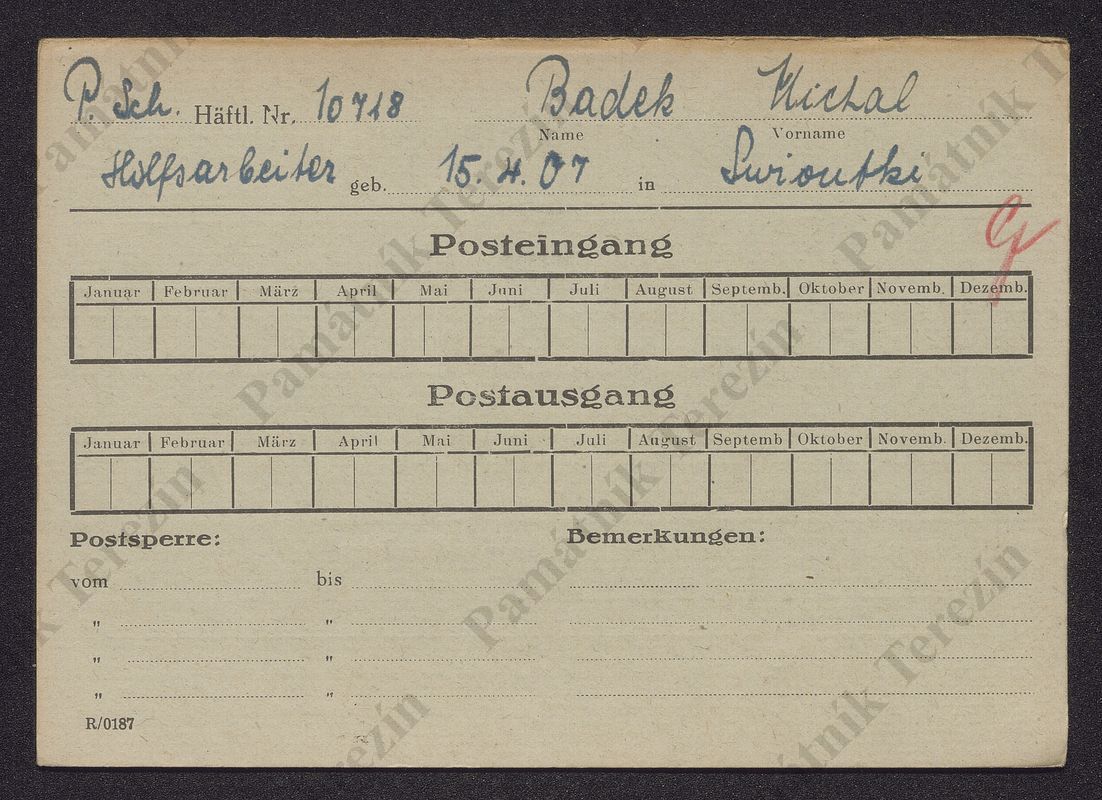 P. Sch. Häftl. Nr. 10718 Badek Michal
Name Vorname
Hilfsarbeiter geb. 15. 4. 07 in
Posteingang
Januar Februar März April Mai Juni Juli August Septemb. Oktober Novemb. Dezemb.
Postausgang
Januar Februar März April Mai Juni Juli August Septemb Oktober Novemb. Dezemb.
Postsperre: Bemerkungen:
vom bis
" "
" "
" "
R/0187
Památník Terezín